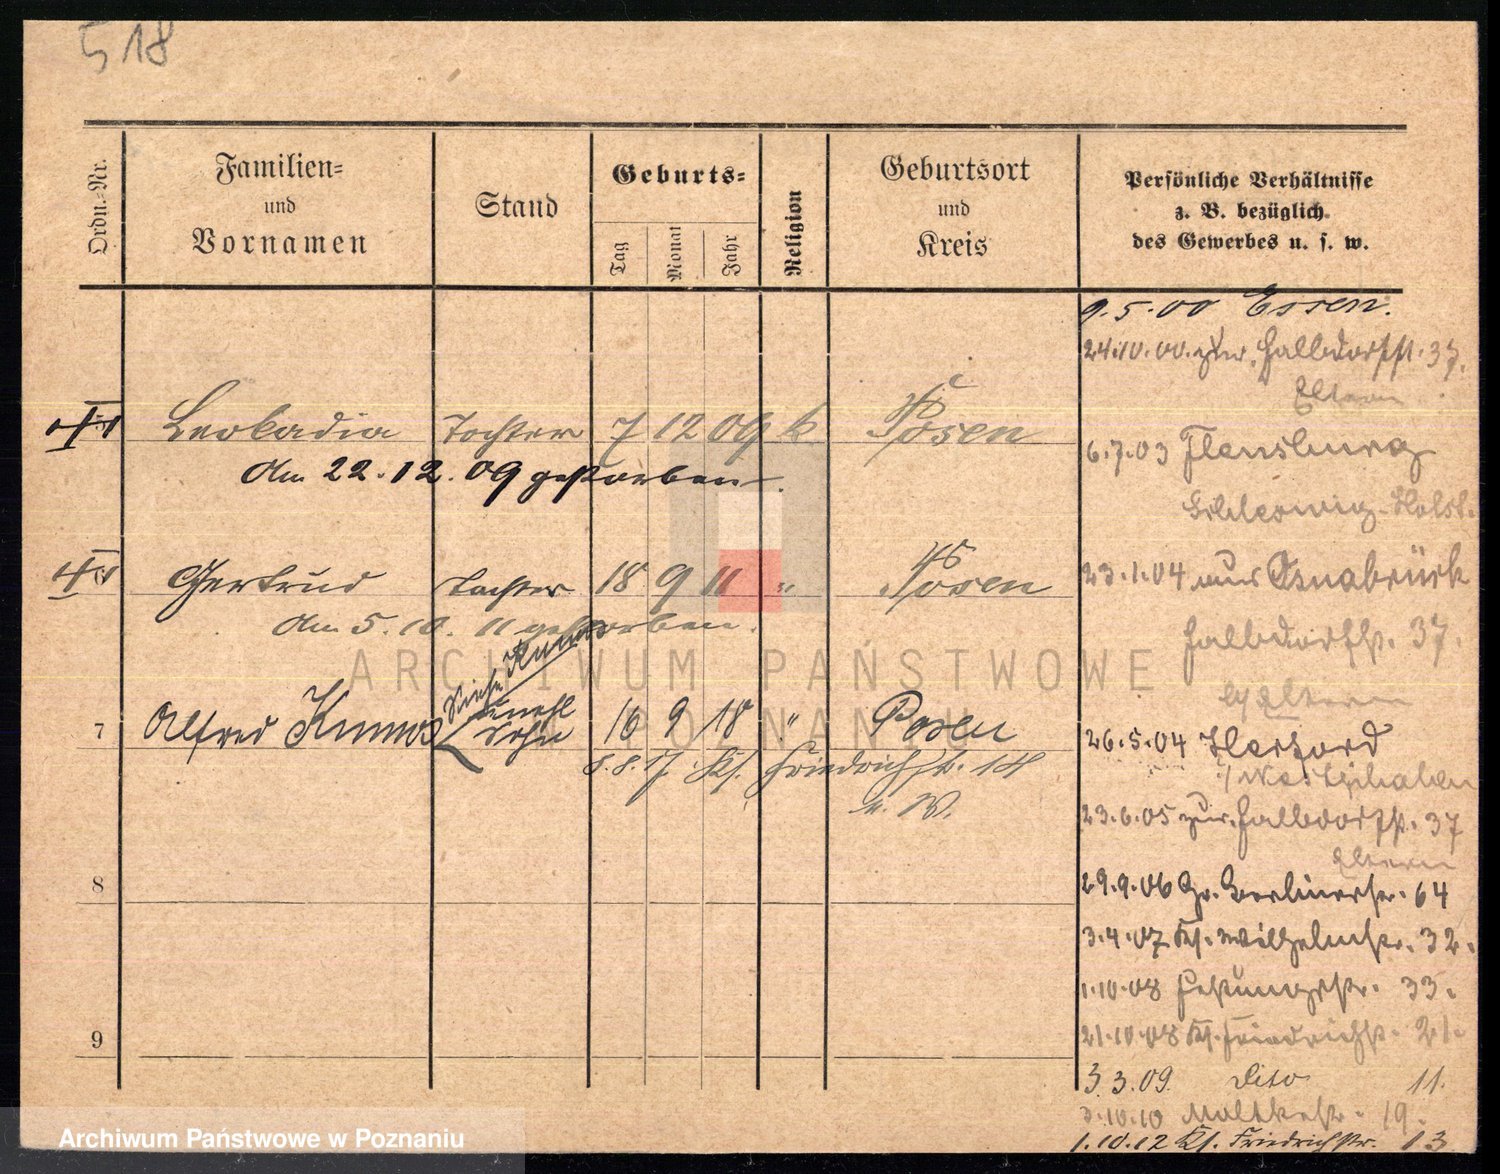 518
Ordn.-Nr.
Familien-
und
Vornamen
Stand
Geburts-
Tag
Monat
Jahr
Religion
Geburtsort
und
Kreis
Persönliche Verhältnisse
z. B. bezüglich
des Gewerbes u. s. w.
9.5.00 Essen.
24.10.00 zur. Halbdorfst. 37.
Eltern
Leokadia Tochter 7 12 09 k Posen
am 22.12.09 gestorben.
6.7.03 Flensburg
Schleswig-Holst.
Gertrud Tochter 18 9 11 " Posen
am 5.10.11 gestorben.
23.1.04 aus Osnabrück
Halbdorfst. 37.
Eltern
Siehe
7 Alfred unehl Sohn 16 9 18 " Posen
8.8.17 Kl. Friedrichstr. 14
u. W.
26.5.04 Herford
i/Westphalen
23.6.05 zur. Halbdorfst. 37
Eltern
29.9.06 Gr. Berlinerstr. 64
3.4.07 Kl. Wilhelmstr. 32.
1.10.08 Festungsstr. 33.
21.10.08 Kl. Friedrichst. 21.
3 3.09. Dito 11.
3.10.10 Moltkestr. 19.
1.10.12 Kl. Friedrichstr. 13
8
9
ARCHIWUM PAŃSTWOWE
W POZNANIU
Archiwum Państwowe w Poznaniu